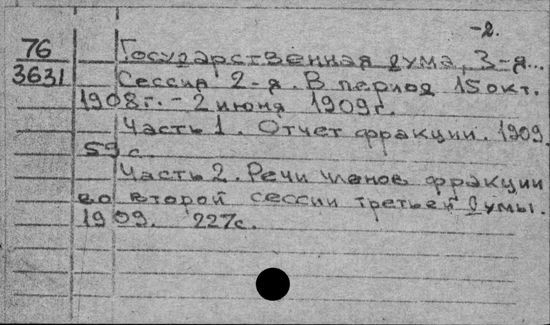 -2.
76 Государственная дума, 3-я...
3631 Сессия 2-я. В период 15 окт.
1908 г. - 2 июня 1909 г.
Часть 1. Отчет фракции. 1909.
59 с.
Часть 2. Речи членов фракции
во второй сессии третьей Думы.
1909. 227 с.